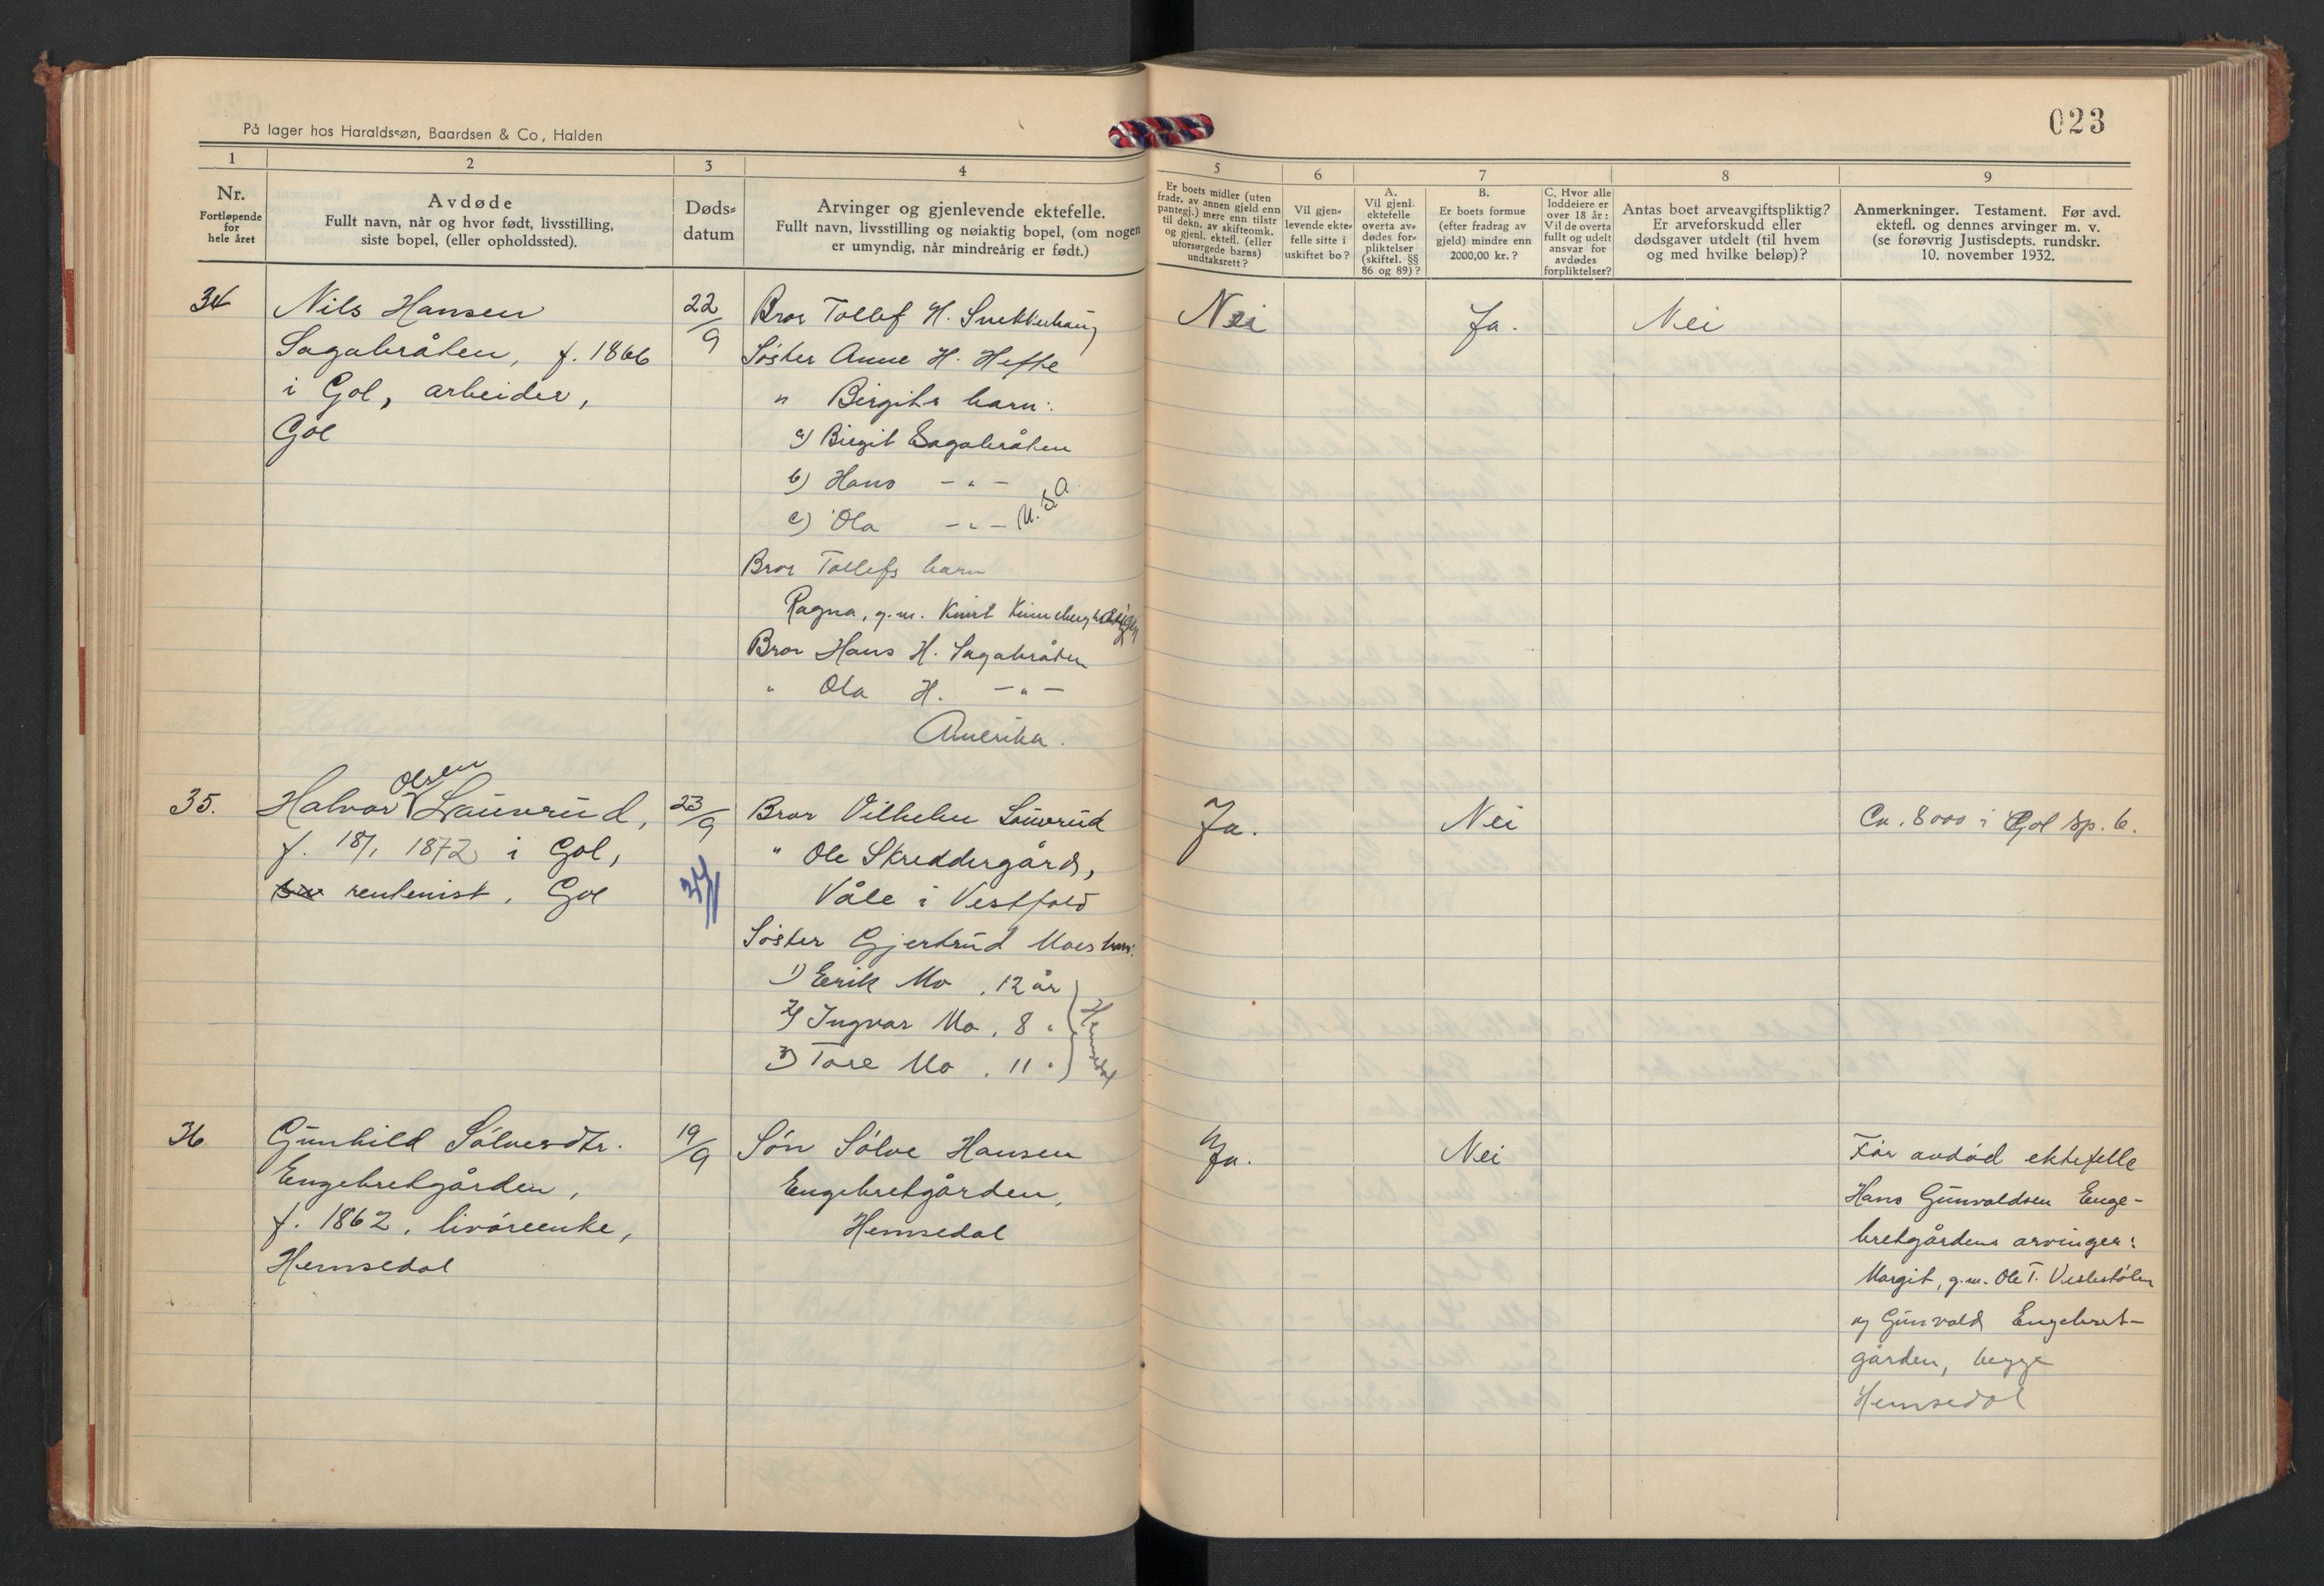 På lager hos Haraldssøn, Baardsen & Co., Halden
023
1
2
3
4
5
6
7
8
9
Nr.
Fortløpende
for
hele året
Avdøde
Fullt navn, når og hvor født, livsstilling,
siste bopel, (eller opholdssted).
Døds-
datum
Arvinger og gjenlevende ektefelle.
Fullt navn, livsstilling og nøiaktig bopel, (om nogen
er umyndig, når mindreårig er født.)
Er boets midler (uten
fradr. av annen gjeld enn
pantegj.) mere enn tilstr
til dekn. av skifteomk.
og gjenl. ektefl. (eller
uforsørgede barns)
undtaksrett?
Vil gjen-
levende ekte-
felle sitte i
uskiftet bo?
A.
Vil gjenl.
ektefelle
overta av-
dødes for-
pliktelser
(skiftel. §§
86 og 89)?
B.
Er boets formue
(efter fradrag av
gjeld) mindre enn
2000,00 kr.?
C. Hvor alle
loddeiere er
over 18 år:
Vil de overta
fullt og udelt
ansvar for
avdødes
forpliktelser?
Antas boet arveavgiftspliktig?
Er arveforskudd eller
dødsgaver utdelt (til hvem
og med hvilke beløp)?
Anmerkninger. Testament. Før avd.
ektefl. og dennes arvinger m. v.
(se forøvrig Justisdepts. rundskr.
10. november 1932.
34
Nils Hansen
Sagabråten, f. 1866
i Gol, arbeider,
Gol
22/9
Bror Tollef H. Snekkerhaug
Søster Anne H. Hefte
" Birgits barn:
a) Birgit Sagabråten
b) Hans - " -
c) Ola - " - U.S.A
Bror Tollefs barn
Ragna, g.m. Knut
Bror Hans H. Sagabråten
" Ola H. - " -
Amerika.
Nei
Ja.
Nei
35.
Halvor Olsen Lauvrud,
f. 18/1 1872 i Gol,
rentenist, Gol
23/9
Bror Vilhelm Lauvrud
" Ole Skreddergård,
Våle i Vestfold
Søster Gjertrud Moes barn:
1) Erik Mo, 12 år
2) Ingvar Mo, 8 "
3) Tore Mo, 11 "
Hemsedal
Ja.
Nei
Ca. 8000 i Gol Sp. b.
36
Gunhild Sølvesdtr.
Engebretgården,
f. 1862, livøreenke,
Hemsedal
19/9
Søn Sølve Hansen
Engebretgården,
Hemsedal
Ja.
Nei
Før avdød ektefelle
Hans Gunvaldsen Enge-
bretgårdens arvinger:
Margit, g.m. Ole T. Veslestølen
og Gunvald Engebret-
gården, begge
Hemsedal